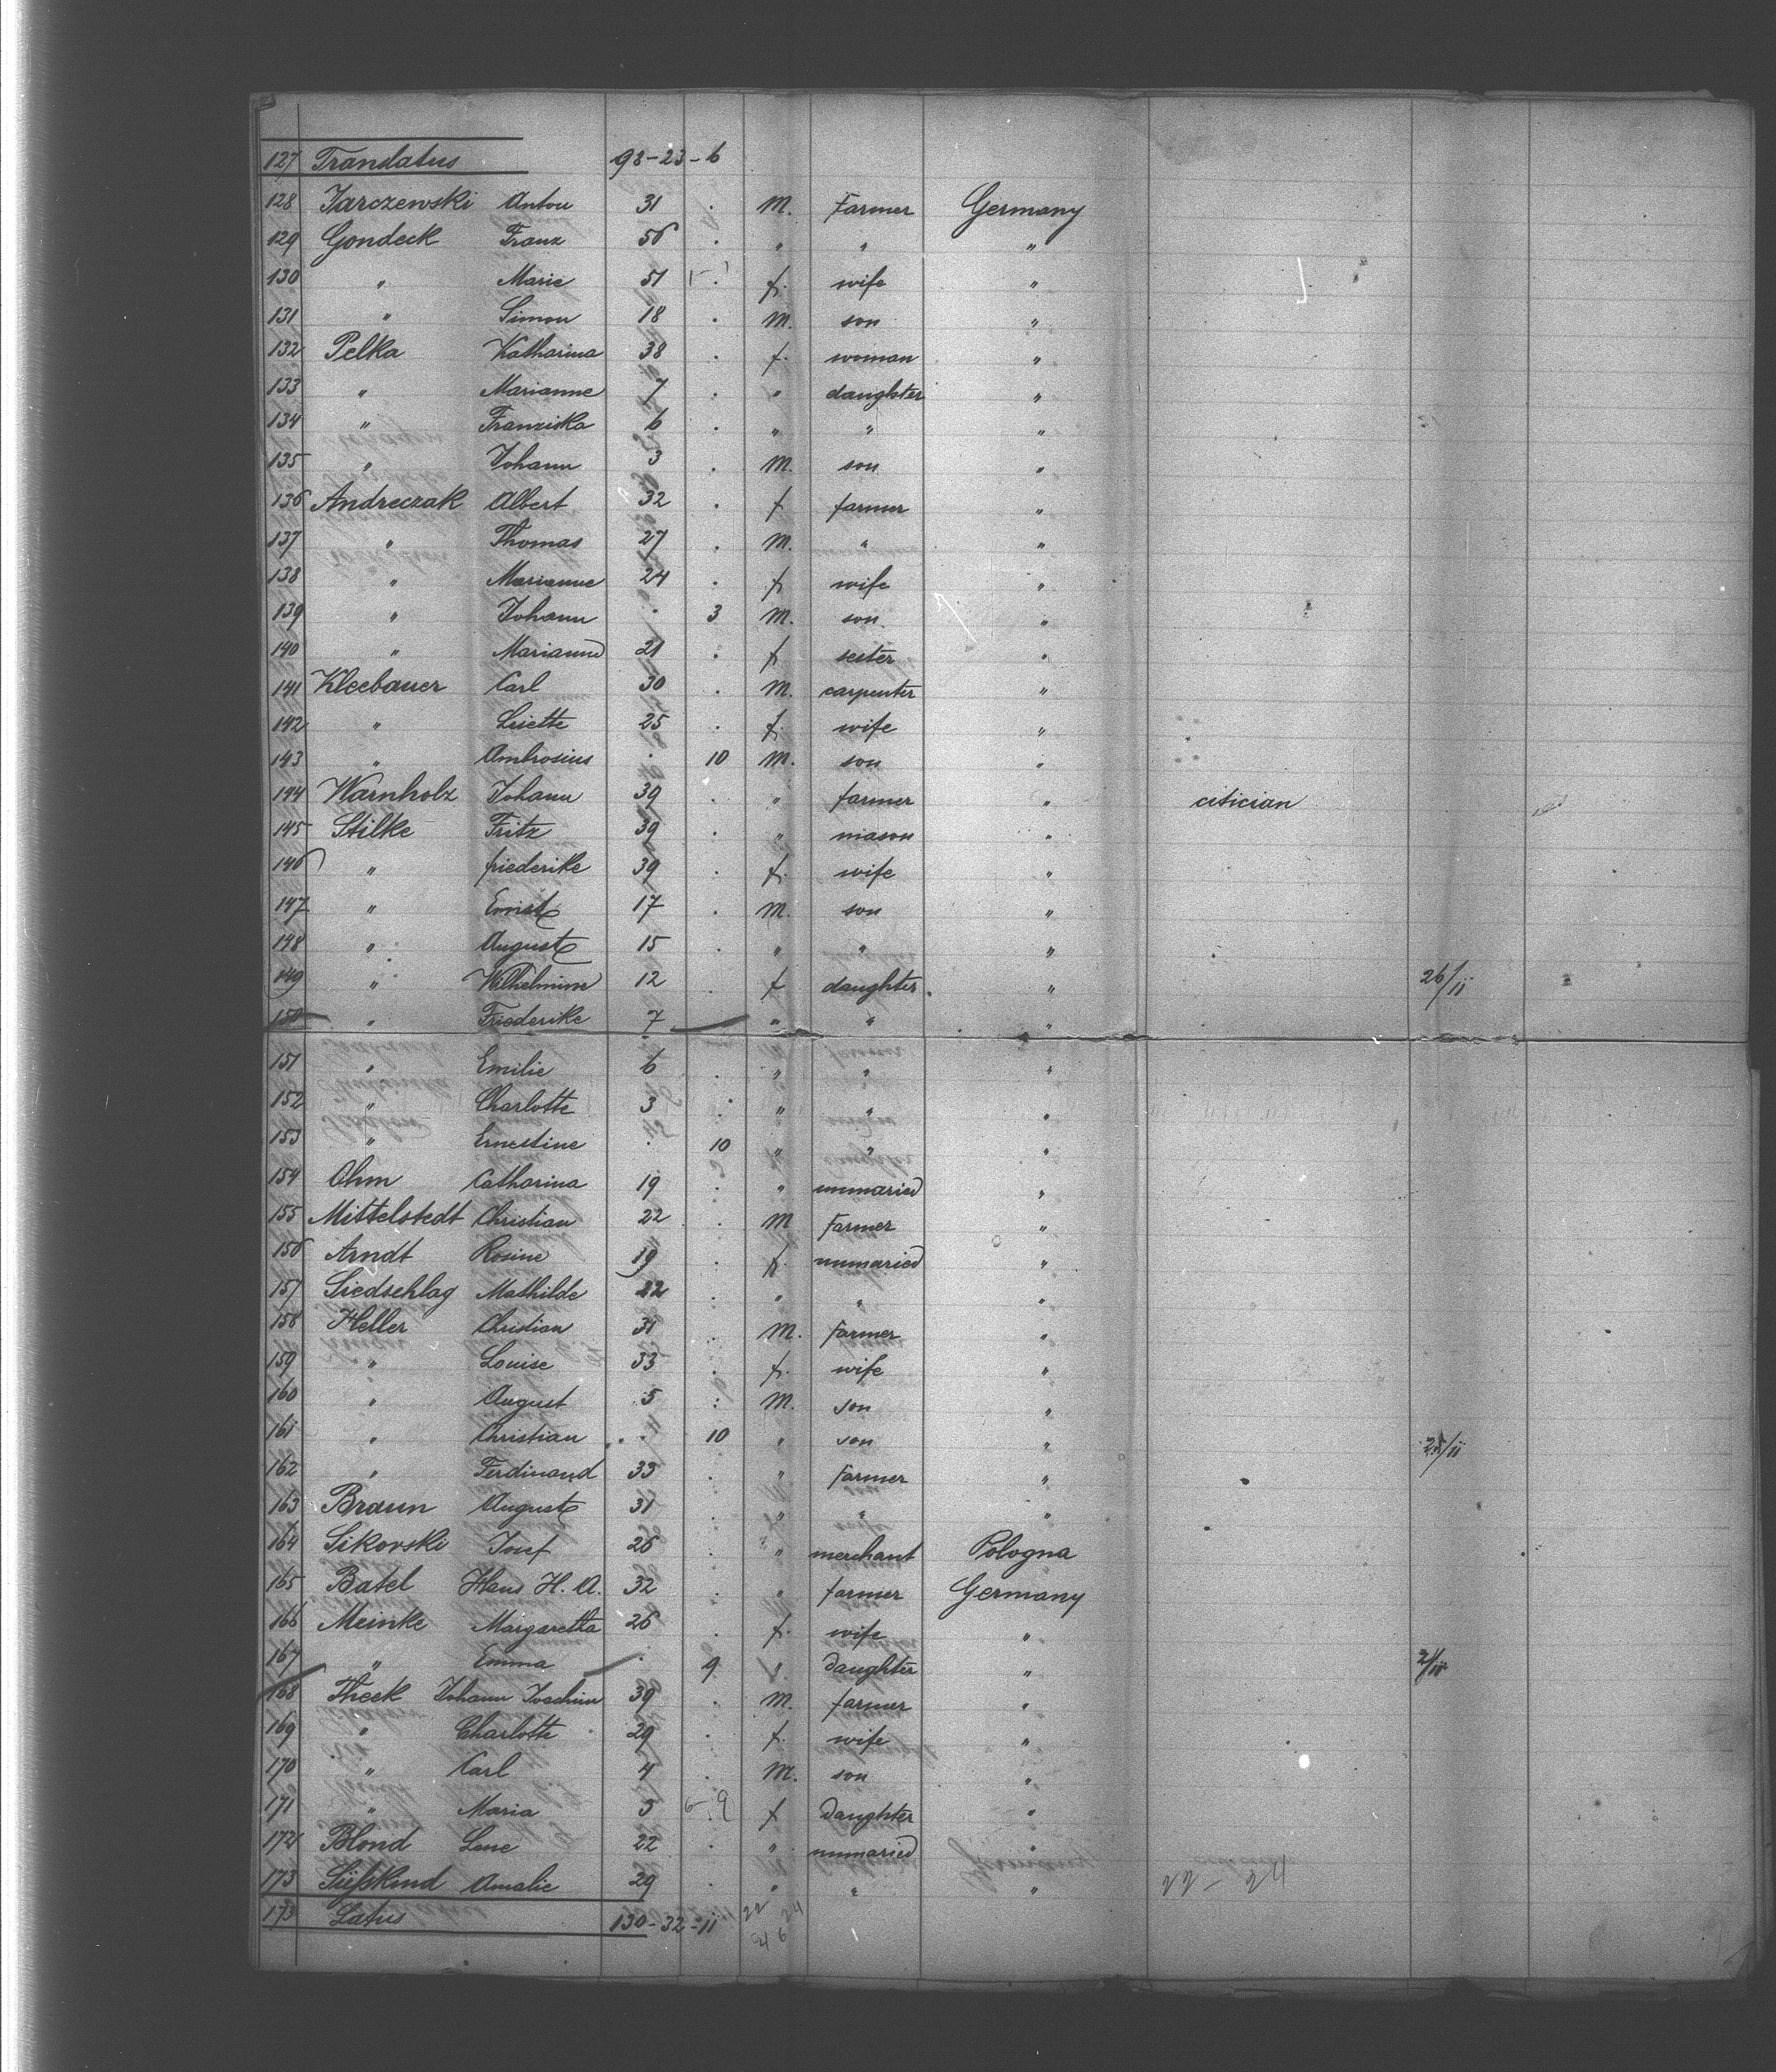 127 Transdatus 98-23-6
128 Jarczewski Anton 31 . M. Farmer Germany
129 Gondeck Franz 56 . " " "
130 " Marie 51 . f. wife "
131 " Simon 18 . M. son "
132 Pelka Katharina 38 . f. woman "
133 " Marianne 7 . " daughter "
134 " Franziska 6 . " " "
135 " Johann 3 . M. son "
136 Andreczak Albert 32 . f farmer "
137 " Thomas 27 . M. " "
138 " Marianne 24 . f. wife "
139 " Johann . 3 M. son. "
140 " Marianne 21 . f sester "
141 Kleebauer Carl 30 . M. carpenter "
142 " Lisette 25 . f. wife "
143 " Ambrosius . 10 M. son "
144 Warnholz Johann 39 . " farmer " citician
145 Stilke Fritz 39 . " mason "
146 " friederike 39 . f. wife "
147 " Ernst 17 . M. son "
148 " August 15 . " " "
149 " Wilhelmine 12 . f daughter. " 26/11
150 " Friederike 7 " " "
151 " Emilie 6 . " " "
152 " Charlotte 3 . " " "
153 " Ernestine . 10 " " "
154 Ohm Catharina 19 . " unmaried "
155 Mittelstedt Christian 22 . M Farmer "
156 Arndt Rosine 19 . f. unmaried "
157 Siedschlag Mathilde 22 . " " "
158 Heller Christian 31 . M. farmer "
159 " Louise 33 . f. wife "
160 " August 5 : M. son "
161 " Christian . 10 " son " 25/11
162 " Ferdinand 33 . " farmer "
163 Braun August 31 . " " "
164 Sikorski Josef 26 . " merchant Pologna
165 Batel Hans H. A. 32 . " farmer Germany
166 Meinke Margaretha 26 . f. wife "
167 " Emma . 9 " Daughter " 2/11
168 Theek Johann Joachim 39 . M. farmer "
169 " Charlotte 29 . f. wife "
170 " Carl 4 . M. son "
171 " Maria 5 . f Daughter "
172 Blond Lene 22 . " unmaried "
173 Süßkind Amalie 29 . " " " 22 - 24
173 Latus 130-32-11 22 24
4 6